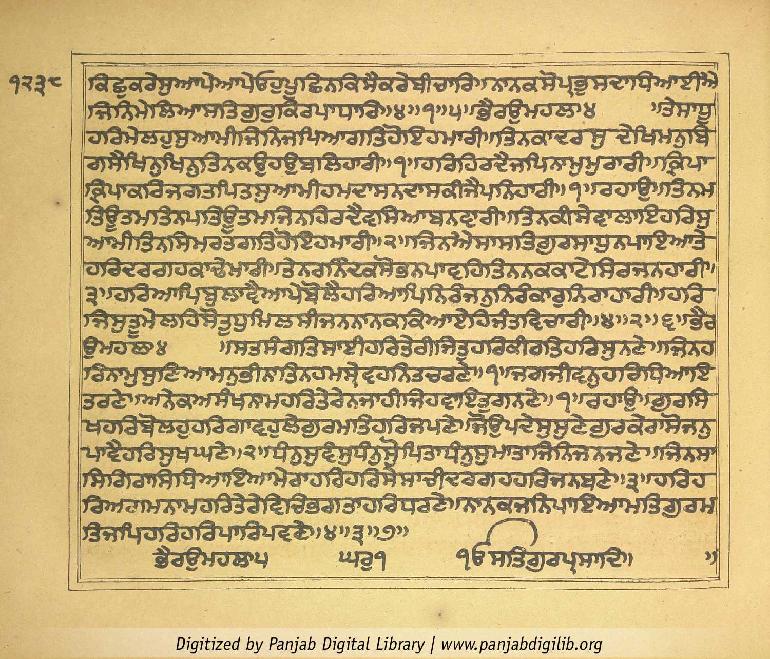 ੧੨੩੮
ਕਿਛੁਕਰੇਸੁਆਪੇਆਪੇਓਹੁਪੁਛਿਨਕਿਸੈਕਰੇਬੀਚਾਰਿ॥ਨਾਨਕਸੋਪ੍ਰਭੁਸਦਾਧਿਆਈਐ
ਜਿਨਿਮੇਲਿਆਸਤਿਗੁਰੁਕਿਰਪਾਧਾਰਿ॥੪॥੧॥੫॥ਭੈਰਉਮਹਲਾ੪ ॥ਤੇਸਾਧੂ
ਹਰਿਮੇਲਹੁਸੁਆਮੀਜਿਨਜਪਿਆਗਤਿਹੋਇਹਮਾਰੀ॥ਤਿਨਕਾਦਰਸੁਦੇਖਿਮਨੁਬਿ
ਗਸੈਖਿਨੁਖਿਨੁਤਿਨਕਉਹਉਬਲਿਹਾਰੀ॥੧॥ਹਰਿਹਿਰਦੈਜਪਿਨਾਮੁਮੁਰਾਰੀ॥ਕ੍ਰਿਪਾ
ਕ੍ਰਿਪਾਕਰਿਜਗਤਪਿਤਸੁਆਮੀਹਮਦਾਸਨਦਾਸਕੀਜੈਪਨਿਹਾਰੀ॥੧॥ਰਹਾਉ॥ਤਿਨਮ
ਤਿਊਤਮਤਿਨਪਤਿਊਤਮਜਿਨਹਿਰਦੈਵਸਿਆਬਨਵਾਰੀ॥ਤਿਨਕੀਸੇਵਾਲਾਇਹਰਿਸੁ
ਆਮੀਤਿਨਸਿਮਰਤਗਤਿਹੋਇਹਮਾਰੀ॥੨॥ਜਿਨਐਸਾਸਤਿਗੁਰਸਾਧੁਨਪਾਇਆਤੇ
ਹਰਿਦਰਗਹਕਾਢੇਮਾਰੀ॥ਤੇਨਰਨਿੰਦਕਸੋਭਨਪਾਵਹਿਤਿਨਨਕਕਾਟੇਸਿਰਜਨਹਾਰੀ॥
੩॥ਹਰਿਆਪਿਬੁਲਾਵੈਆਪੇਬੋਲੈਹਰਿਆਪਿਨਿਰੰਜਨੁਨਿਰੰਕਾਰੁਨਿਰਾਹਾਰੀ॥ਹਰਿ
ਜਿਸੁਤੂਮੇਲਹਿਸੋਤੁਧੁਮਿਲਸੀਜਨਨਾਨਕਕਿਆਏਹਿਜੰਤਵਿਚਾਰੀ॥੪॥੨॥੬॥ਭੈਰ
ਉਮਹਲਾ੪ ॥ਸਤਸੰਗਤਿਸਾਈਹਰਿਤੇਰੀਜਿਤੁਹਰਿਕੀਰਤਿਹਰਿਸੁਨਣੇ॥ਜਿਨਹ
ਰਿਨਾਮੁਸੁਣਿਆਮਨੁਭੀਨਾਤਿਨਹਮਸ੍ਰੇਵਹਨਿਤਚਰਣੇ॥੧॥ਜਗਜੀਵਨੁਹਰਿਧਿਆਇ
ਤਰਣੇ॥ਅਨੇਕਅਸੰਖਨਾਮਹਰਿਤੇਰੇਨਜਾਹੀਜਿਹਵਾਇਤੁਗਨਣੇ॥੧॥ਰਹਾਉ॥ਗੁਰਸਿ
ਖਹਰਿਬੋਲਹੁਹਰਿਗਾਵਹੁਲੇਗੁਰਮਤਿਹਰਿਜਪਣੇ॥ਜੋਉਪਦੇਸੁਸੁਣੇਗੁਰਕੇਰਾਸੋਜਨੁ
ਪਾਵੈਹਰਿਸੁਖਘਣੇ॥੨॥ਧੰਨੁਸੁਵੰਸੁਧੰਨੁਸੁਪਿਤਾਧੰਨੁਸੁਮਾਤਾਜਿਨਿਜਨਜਣੇ॥ਜਿਨਸਾ
ਸਿਗਿਰਾਸਿਧਿਆਇਆਮੇਰਾਹਰਿਹਰਿਸੇਸਾਚੀਦਰਗਹਹਰਿਜਨਬਣੇ॥੩॥ਹਰਿਹ
ਰਿਅਗਮਨਾਮਹਰਿਤੇਰੇਵਿਚਿਭਗਤਾਹਰਿਧਰਣੇ॥ਨਾਨਕਜਨਿਪਾਇਆਮਤਿਗੁਰਮ
ਤਿਜਪਿਹਰਿਹਰਿਪਾਰਿਪਵਣੇ॥੪॥੩॥੭॥
ਭੈਰਉਮਹਲਾ੫ ਘਰੁ੧ ੴਸਤਿਗੁਰਪ੍ਰਸਾਦਿ॥ ॥
Digitized by Panjab Digital Library | www.panjabdigilib.org